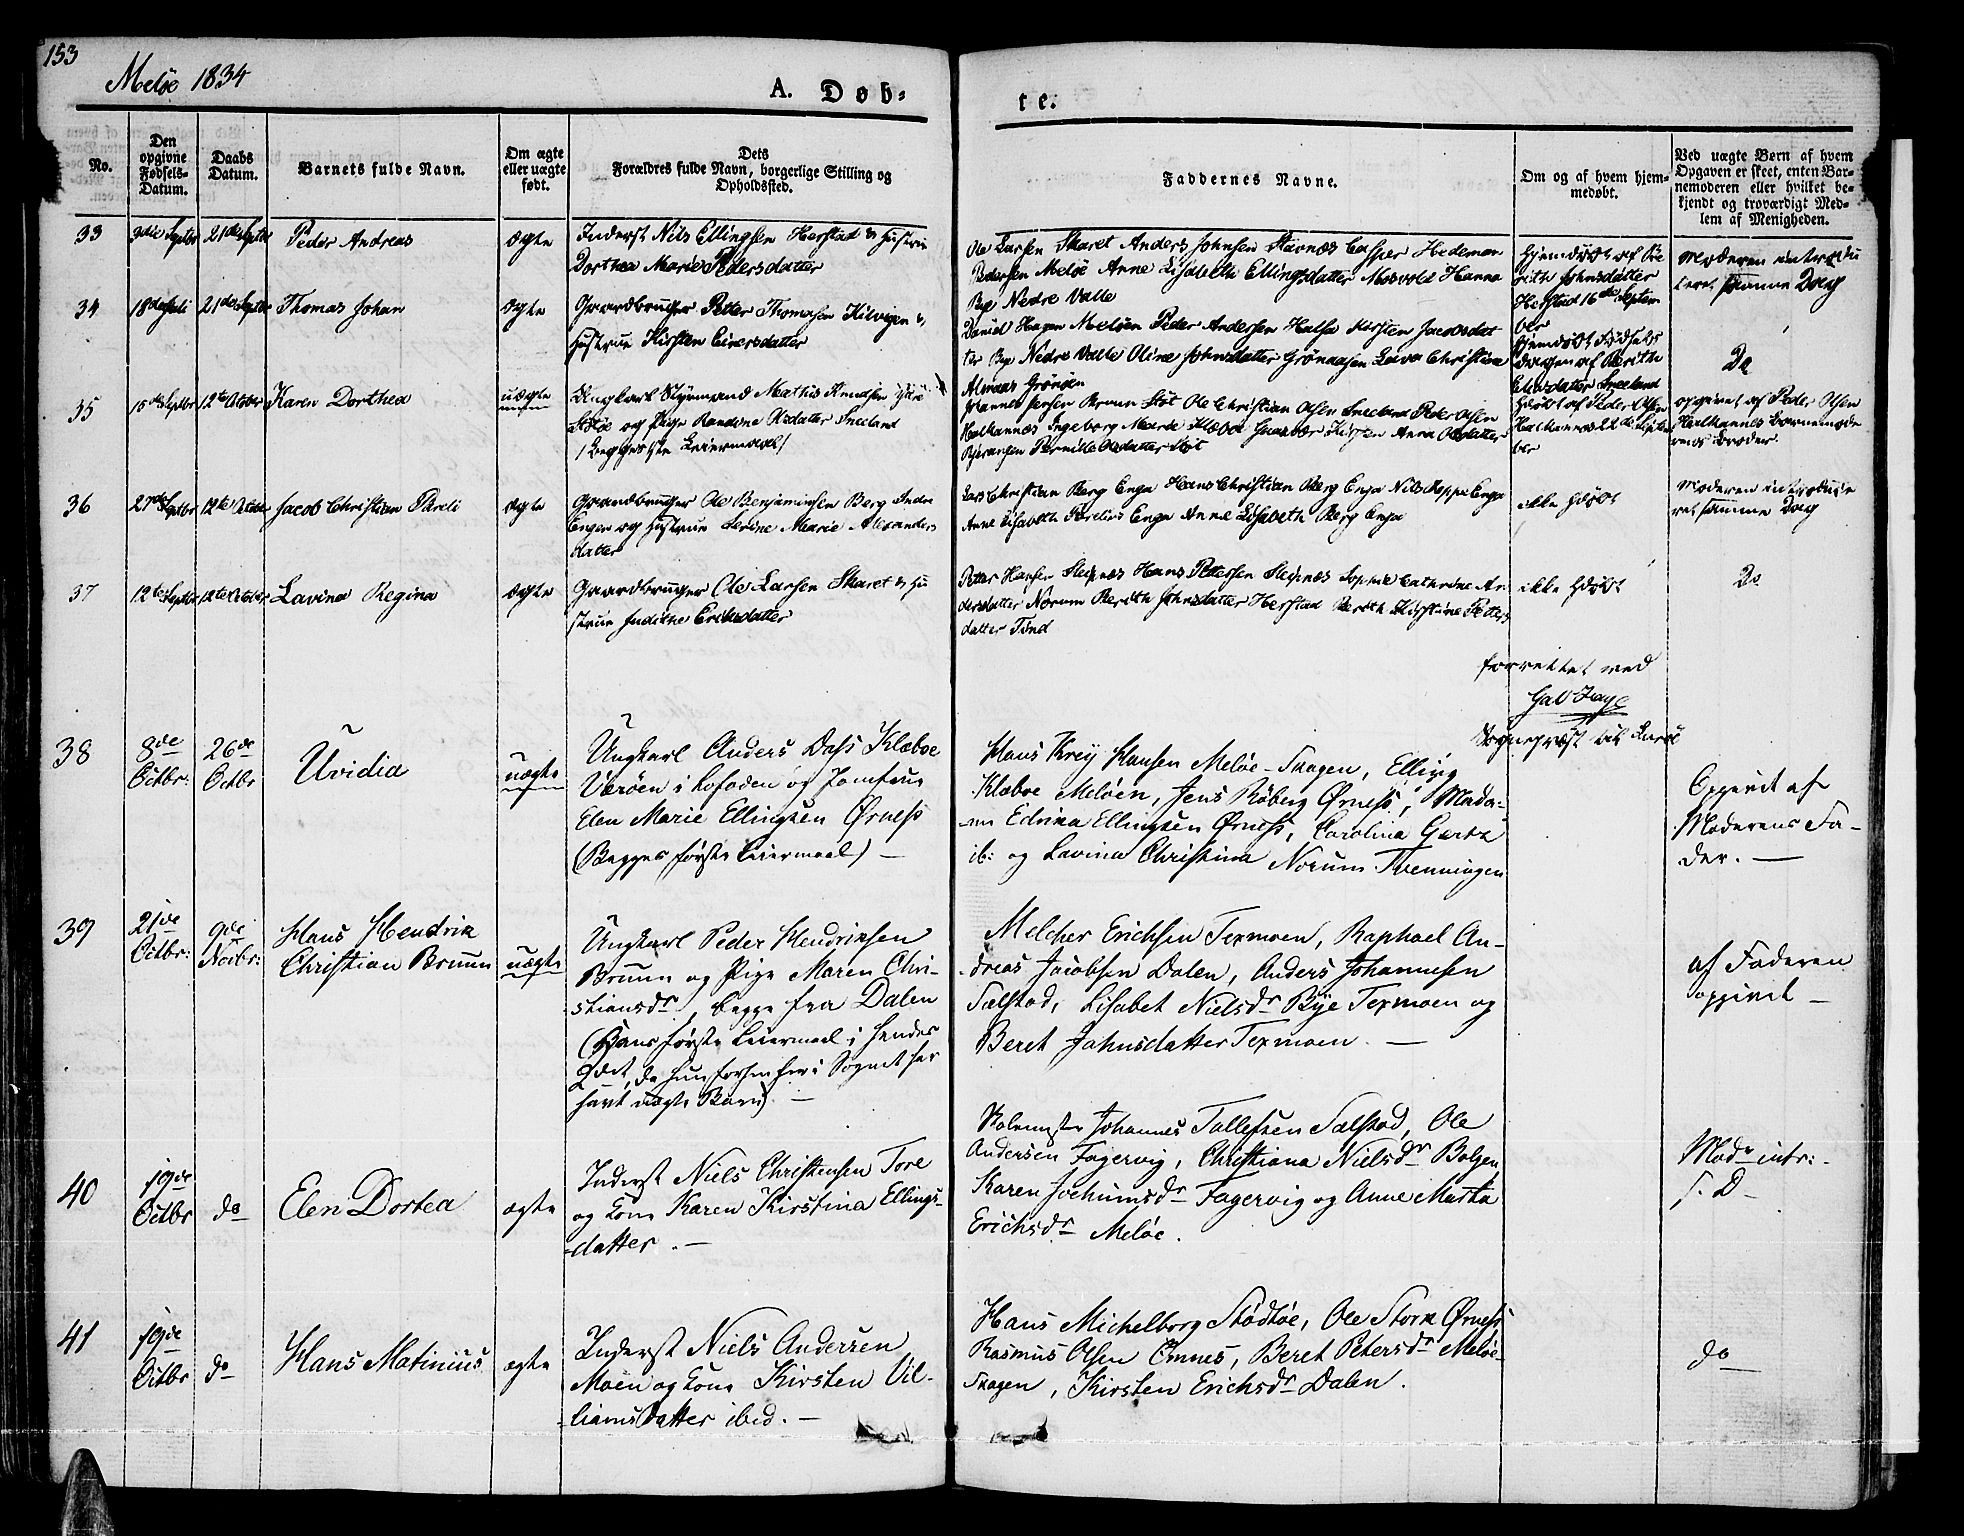 153
Meløe 1834
A. Døb-
te.
No.
Den opgivne Fødsels-Datum.
Daabs Datum.
Barnets fulde Navn.
Om ægte eller uægte født.
Dets Forældres fulde Navn, borgerlige Stilling og Opholdssted.
Faddernes Navne.
Om og af hvem hjemmedøbt.
Ved uægte Børn af hvem Opgaven er skeet, enten Barnemoderen eller hvilket bekjendt og troværdigt Medlem af Menigheden.
33
21de Septbr
Peder Andreas
ægte
Inderst Nils Ellingsen Herstad & Hustrue
Dorthea Marie Pedersdatter
Ole Larsen Skaret Anders Johnsen Støvnæs Casper Hedeman
Pedersen Meløe Anne Lisabeth Ellingsdatter Mosvold Hanna
Bye Nedre Valle
Hjemdøbt af Be
rith Johnsdatter
Herstad 16de Septem
ber
Moderen introdu
ceret samme Dag
34
18de Juli
21de Septbr
Thomas Johan
ægte
Gaardbruger Peder Thomasen Kilvigen &
Hustrue Kirsten Einersdatter
Daniel Hagen Meløen Peder Andersen Halsa Kirsten Jacobsdat
ter Bye Nedre Valle Oline Johnsdatter Grønaasen Lava Christine
Almaas Grønøen
Hjemdøbt Fødsels
dagen af Berith
Eliasdatter Sneeland
Do
35
12te Octobr
Karen Dorthea
uægte
Ungkarl Styrmand Mathis Knudsen Ytre
og Pige Randine Olsdatter Sneeland
(Begges 1ste Leiermaal)
Johannes Jensen Bruun Støt Ole Christian Olsen Sneeland Peder Olsen
Halkannæs Ingeborg Marie Klæboe Kirsten Anna Olsdatter
Bjerangen Pernille Olsdatter Støt
Hdøbt af Peder Olsen
Halkannæs 22de Septem
ber
opgivet af Peder Olsen
Halkannes Barnemode
rens Broder.
36
27de Septbr
12te Octobr
Jacob Christian Pareli
ægte
Gaardbruger Ole Benjaminsen Berg Indre
Enge og Hustrue Serine Marie Alexanders
datter
Lars Christian Berg Enge Hans Christian Berg Enge Nils Koppe Enge
Anne Lisabeth Parelius Enge Anne Lisabeth Berg Enge
ikke Hdøbt
Moderen introduce
ret samme Dag
37
12te Septbr
12te Octobr
Lavina Regina
ægte
Gaardbruger Ole Larsen Skaret & Hu
strue Indiane Eriksdatter
Petter Hansen Sleipnæs Hans Pettersen Sleipnæs Sophie Cathrine An
dersdatter Norum Berith Johnsdatter Herstad Berith Kirstine Petters
datter Tind
ikke Hdøbt
Do
forrettet ved
Sognepræst til
38
8de
Octbr:
26de
Octbr
Uvidia
uægte
Ungkarl Anders Dass Klæboe
Værøen i Lofoden og Jomfrue
Elen Marie Ellingsen Ørnæss
(Begges første Leiermaal) —
Hans Krey Hansen Meløe-Skagen, Elling
Klæboe Meløen, Jens Røberg Ørness, Mada-
me Edvina Ellingsen Ørness, Carolina Gartz
ib: og Lavina Christina Norum Tvenningen
Opgivet af
Moderens Fa-
der. —
39
21de
Octbr:
9de
Novbr:
Hans Hendrik
Christian Bruun
uægte
Ungkarl Peder Hendriksen
Bruun og Pige Maren Chri-
stiansdr, begge fra Dalen
(Hans første Leiermaal i hendes
2det, da hun forhen her i Sognet har
havt uægte Barn). —
Melcher Erichsen Texmoen, Raphael An-
dreas Jacobsen Dalen, Anders Johannesen
Selstad, Lisabet Nielsdr Bye Texmoen og
Beret Johnsdatter Texmoen. —
af Faderen
opgivet —
40
19de
Octbr
do
Elen Dortea
ægte
Inderst Niels Christensen Tore
og Kone Karen Kirstina Ellings-
datter. —
Skolemester Johannes Tollefsen Selstad, Ole
Andersen Fagervig, Christiana Nielsdr Bolgen
Karen Jochumsdr Fagervig og Anne Marta
Erichsdr Meløe.
Modr intr:
s. D —
41
19de
Octbr
do
Hans Matinius
ægte
Inderst Niels Andersen
Moen og Kone Kirsten Vil-
liamsdatter ibid. —
Hans Michelborg Stødtøe, Ole Storm Ørness
Rasmus Olsen Omnes, Beret Petersdr Meløe-
Skagen, Kirsten Erichsdr Dalen.
do